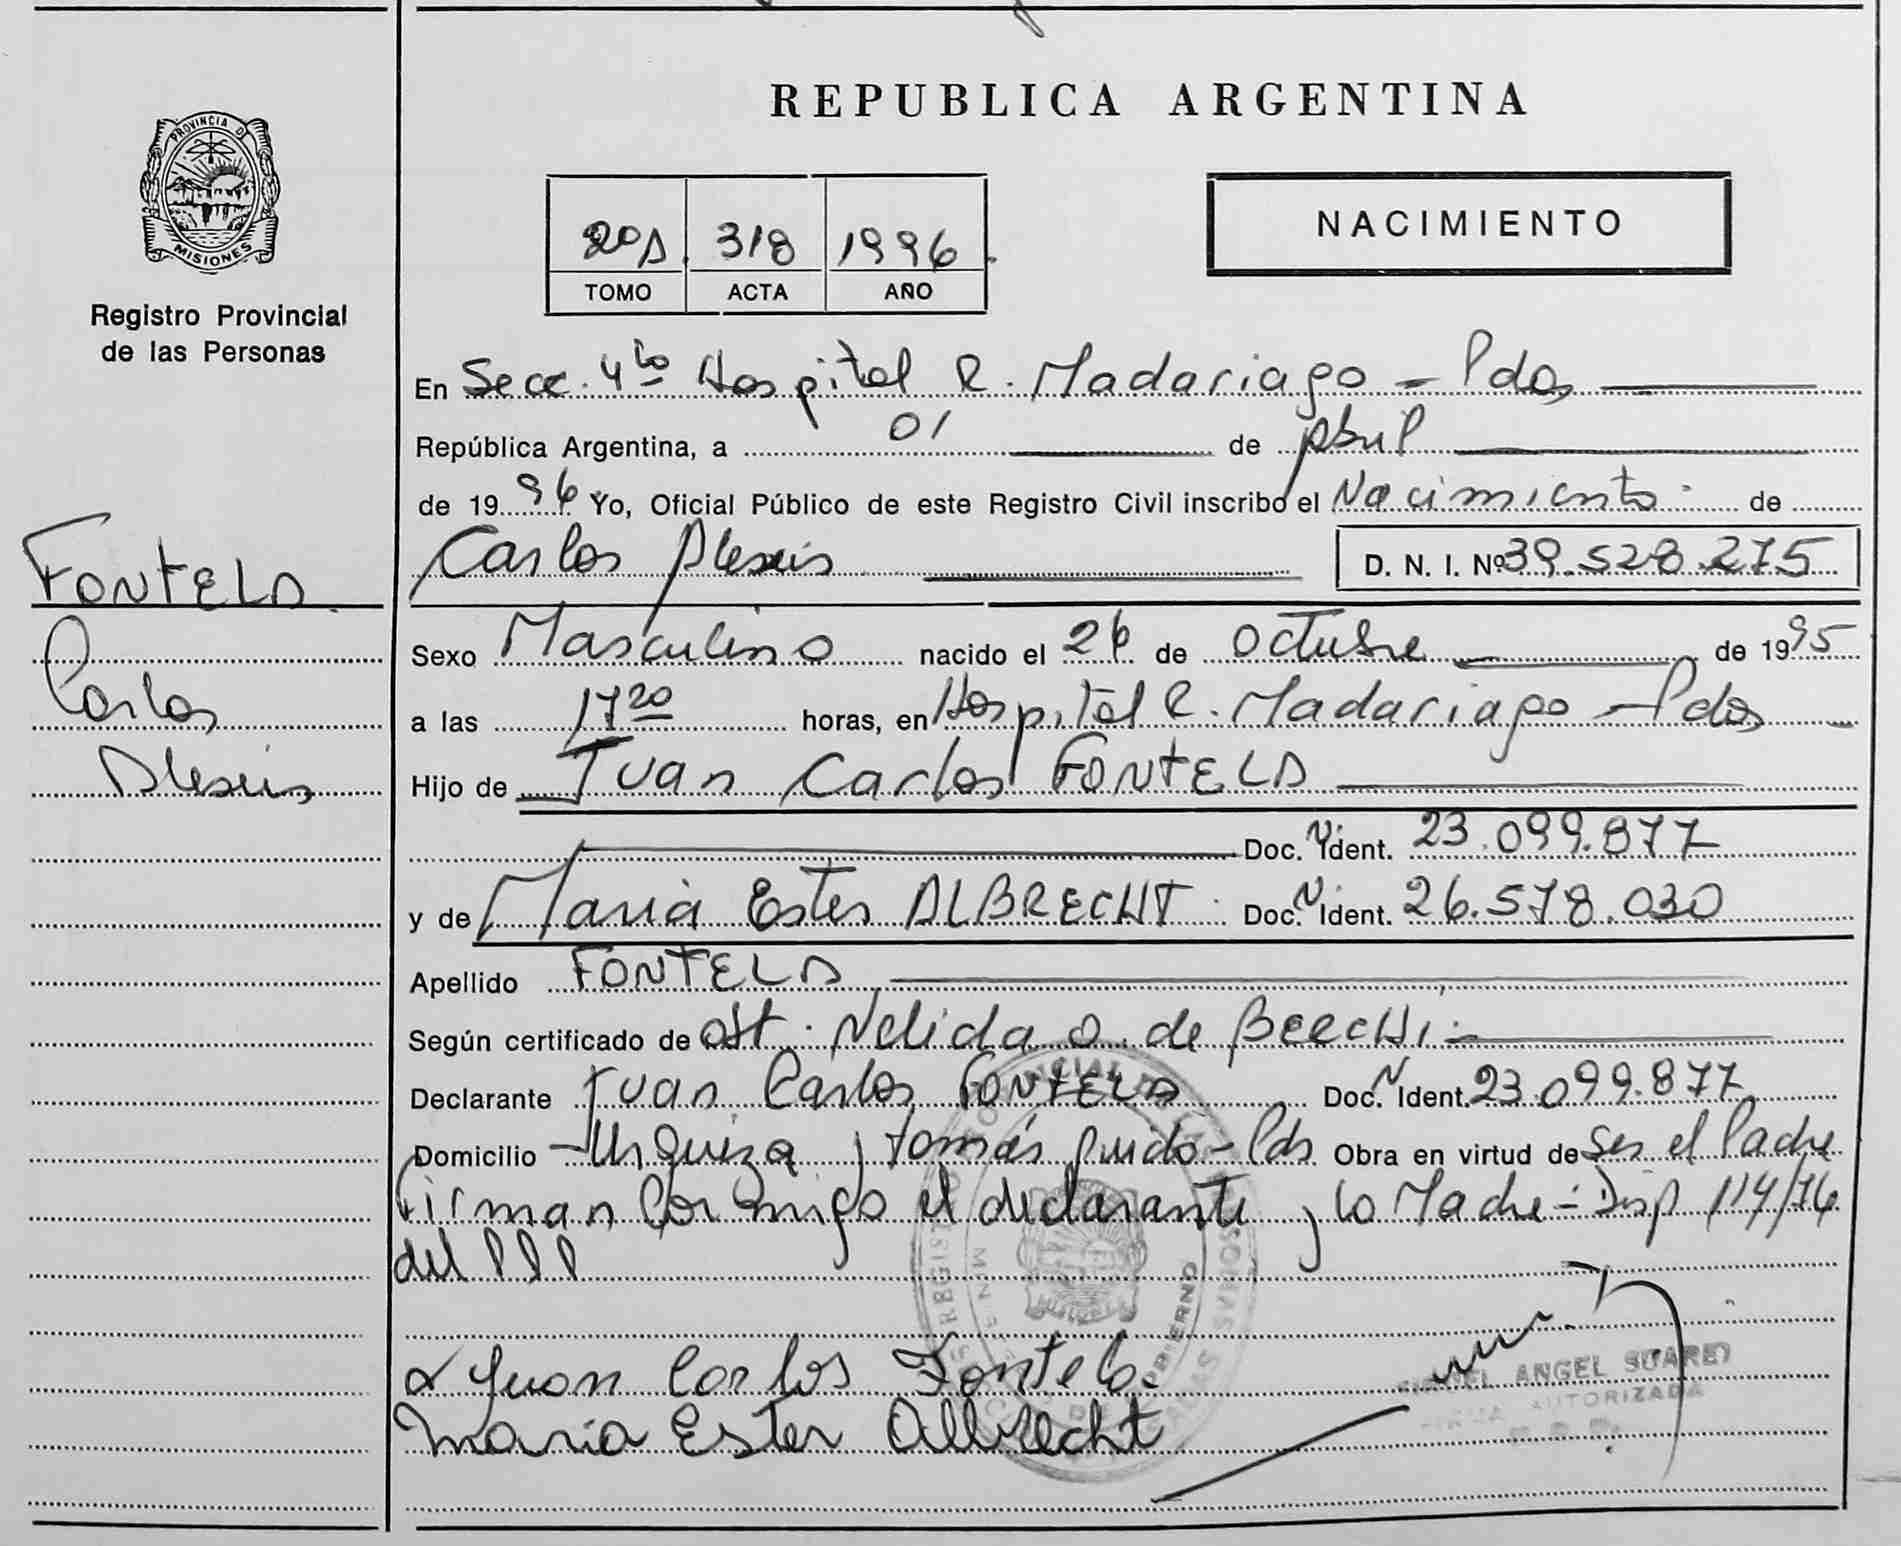 REPUBLICA ARGENTINA
PROVINCIA D
MISIONES
Registro Provincial
de las Personas
NACIMIENTO
318 1996
TOMO ACTA AÑO
En Secc. 4ta Hospital R. Madariaga - Pdas
República Argentina, a 01 de Abril
de 1996 Yo, Oficial Público de este Registro Civil inscribo el Nacimiento de
Carlos Alexis D. N. I. Nº 39.528.275
FONTELA
Carlos
Alexis
Sexo Masculino nacido el 26 de Octubre de 1995
a las 17 20 horas, en Hospital R. Madariaga - Pdas
Hijo de Juan Carlos FONTELA
Doc. N Ident. 23.099.877
y de Maria Ester ALBRECHT Doc. N Ident. 26.578.030
Apellido FONTELA
Según certificado de Obst. Nelida O. de
Declarante Juan Carlos FONTELA Doc. N Ident. 23.099.877
Domicilio Urquiza y Tomás Guido - Pds Obra en virtud de Ser el Padre
Firman Conmigo el declarante y la Madre - Disp 114/76
del
Juan Carlos Fontela
Maria Ester Albrecht
MIGUEL ANGEL SUAREZ
FIRMA AUTORIZADA